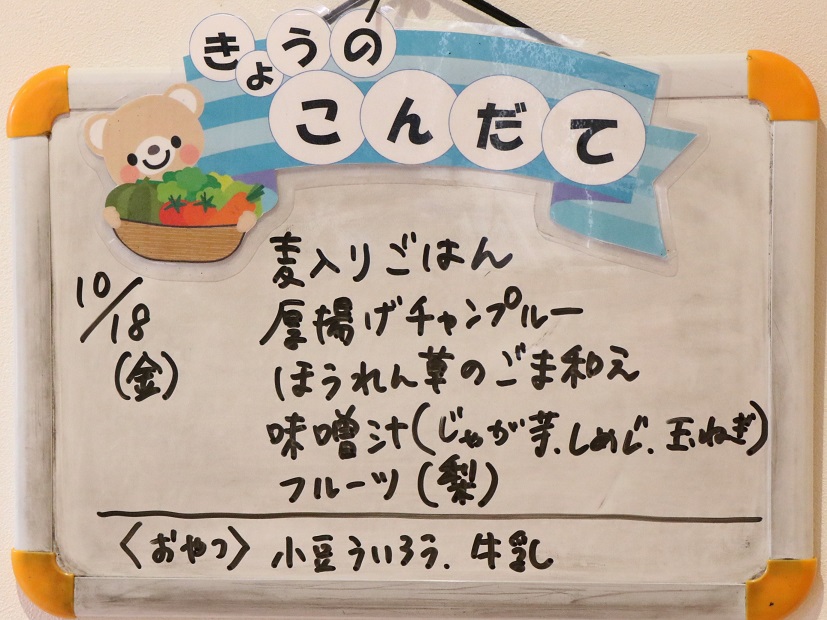 きょうの
こんだて
10/18
(金)
麦入りごはん
厚揚げチャンプルー
ほうれん草のごま和え
味噌汁(じゃが芋、しめじ、玉ねぎ)
フルーツ(梨)
〈おやつ〉 小豆ういろう、牛乳